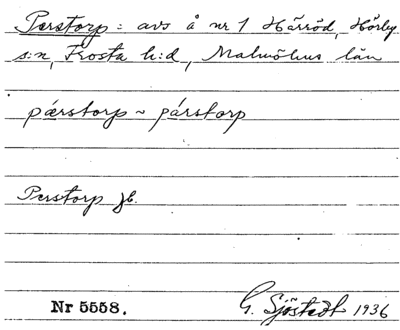 Perstorp: avs å nr 1 Härröd, Hörby
s:n, Frosta h:d, Malmöhus län
pærstorp ~ párstorp
Perstorp jb.
Nr 5558.
G. Sjöstedt 1936